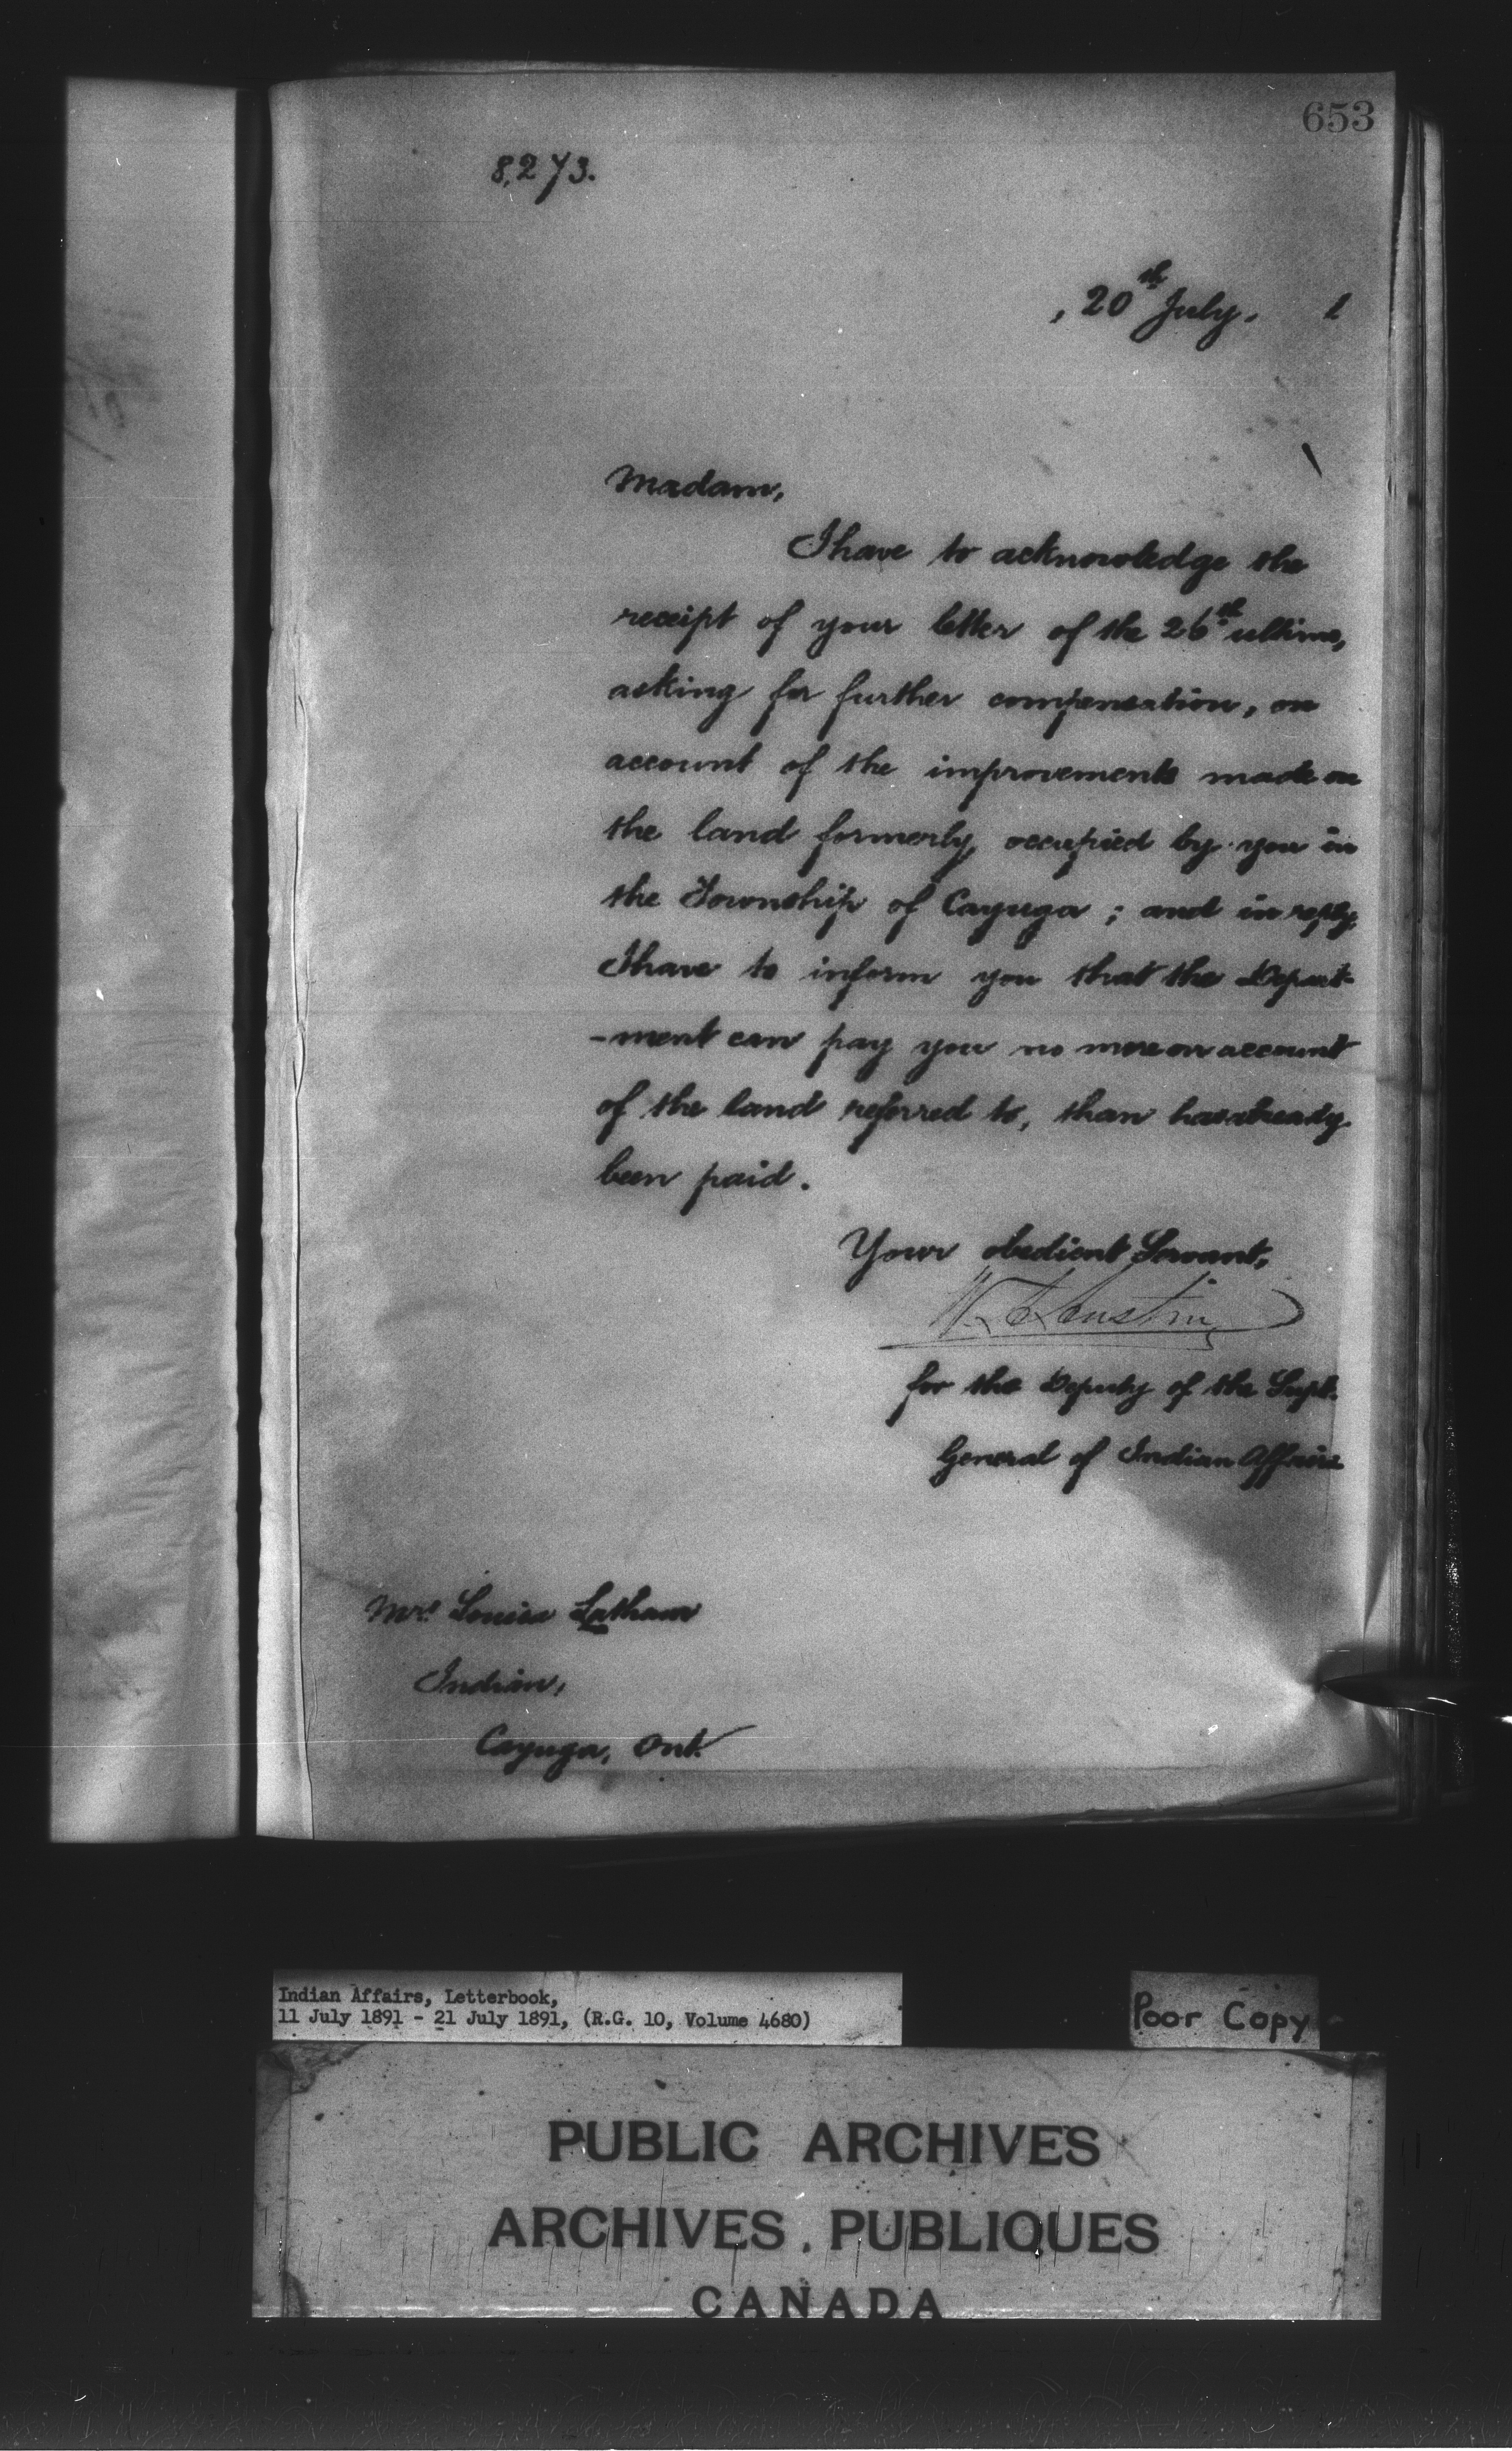 653
8,273.
, 20th July. 1
Madam,
I have to acknowledge the
receipt of your letter of the 26th ultimo,
asking for further compensation, on
account of the improvements made on
the land formerly occupied by you in
the Township of Cayuga; and in reply
I have to inform you that the Depart-
-ment can pay you no more on account
of the land referred to, than has already
been paid.
Your obedient Servant,
Austin
for the Deputy of the Supt.
General of Indian Affairs
Mrs. Louisa Latham
Indian,
Cayuga, Ont.
Indian Affairs, Letterbook,
11 July 1891 - 21 July 1891, (R.G. 10, Volume 4680)
Poor Copy
PUBLIC ARCHIVES
ARCHIVES PUBLIQUES
CANADA